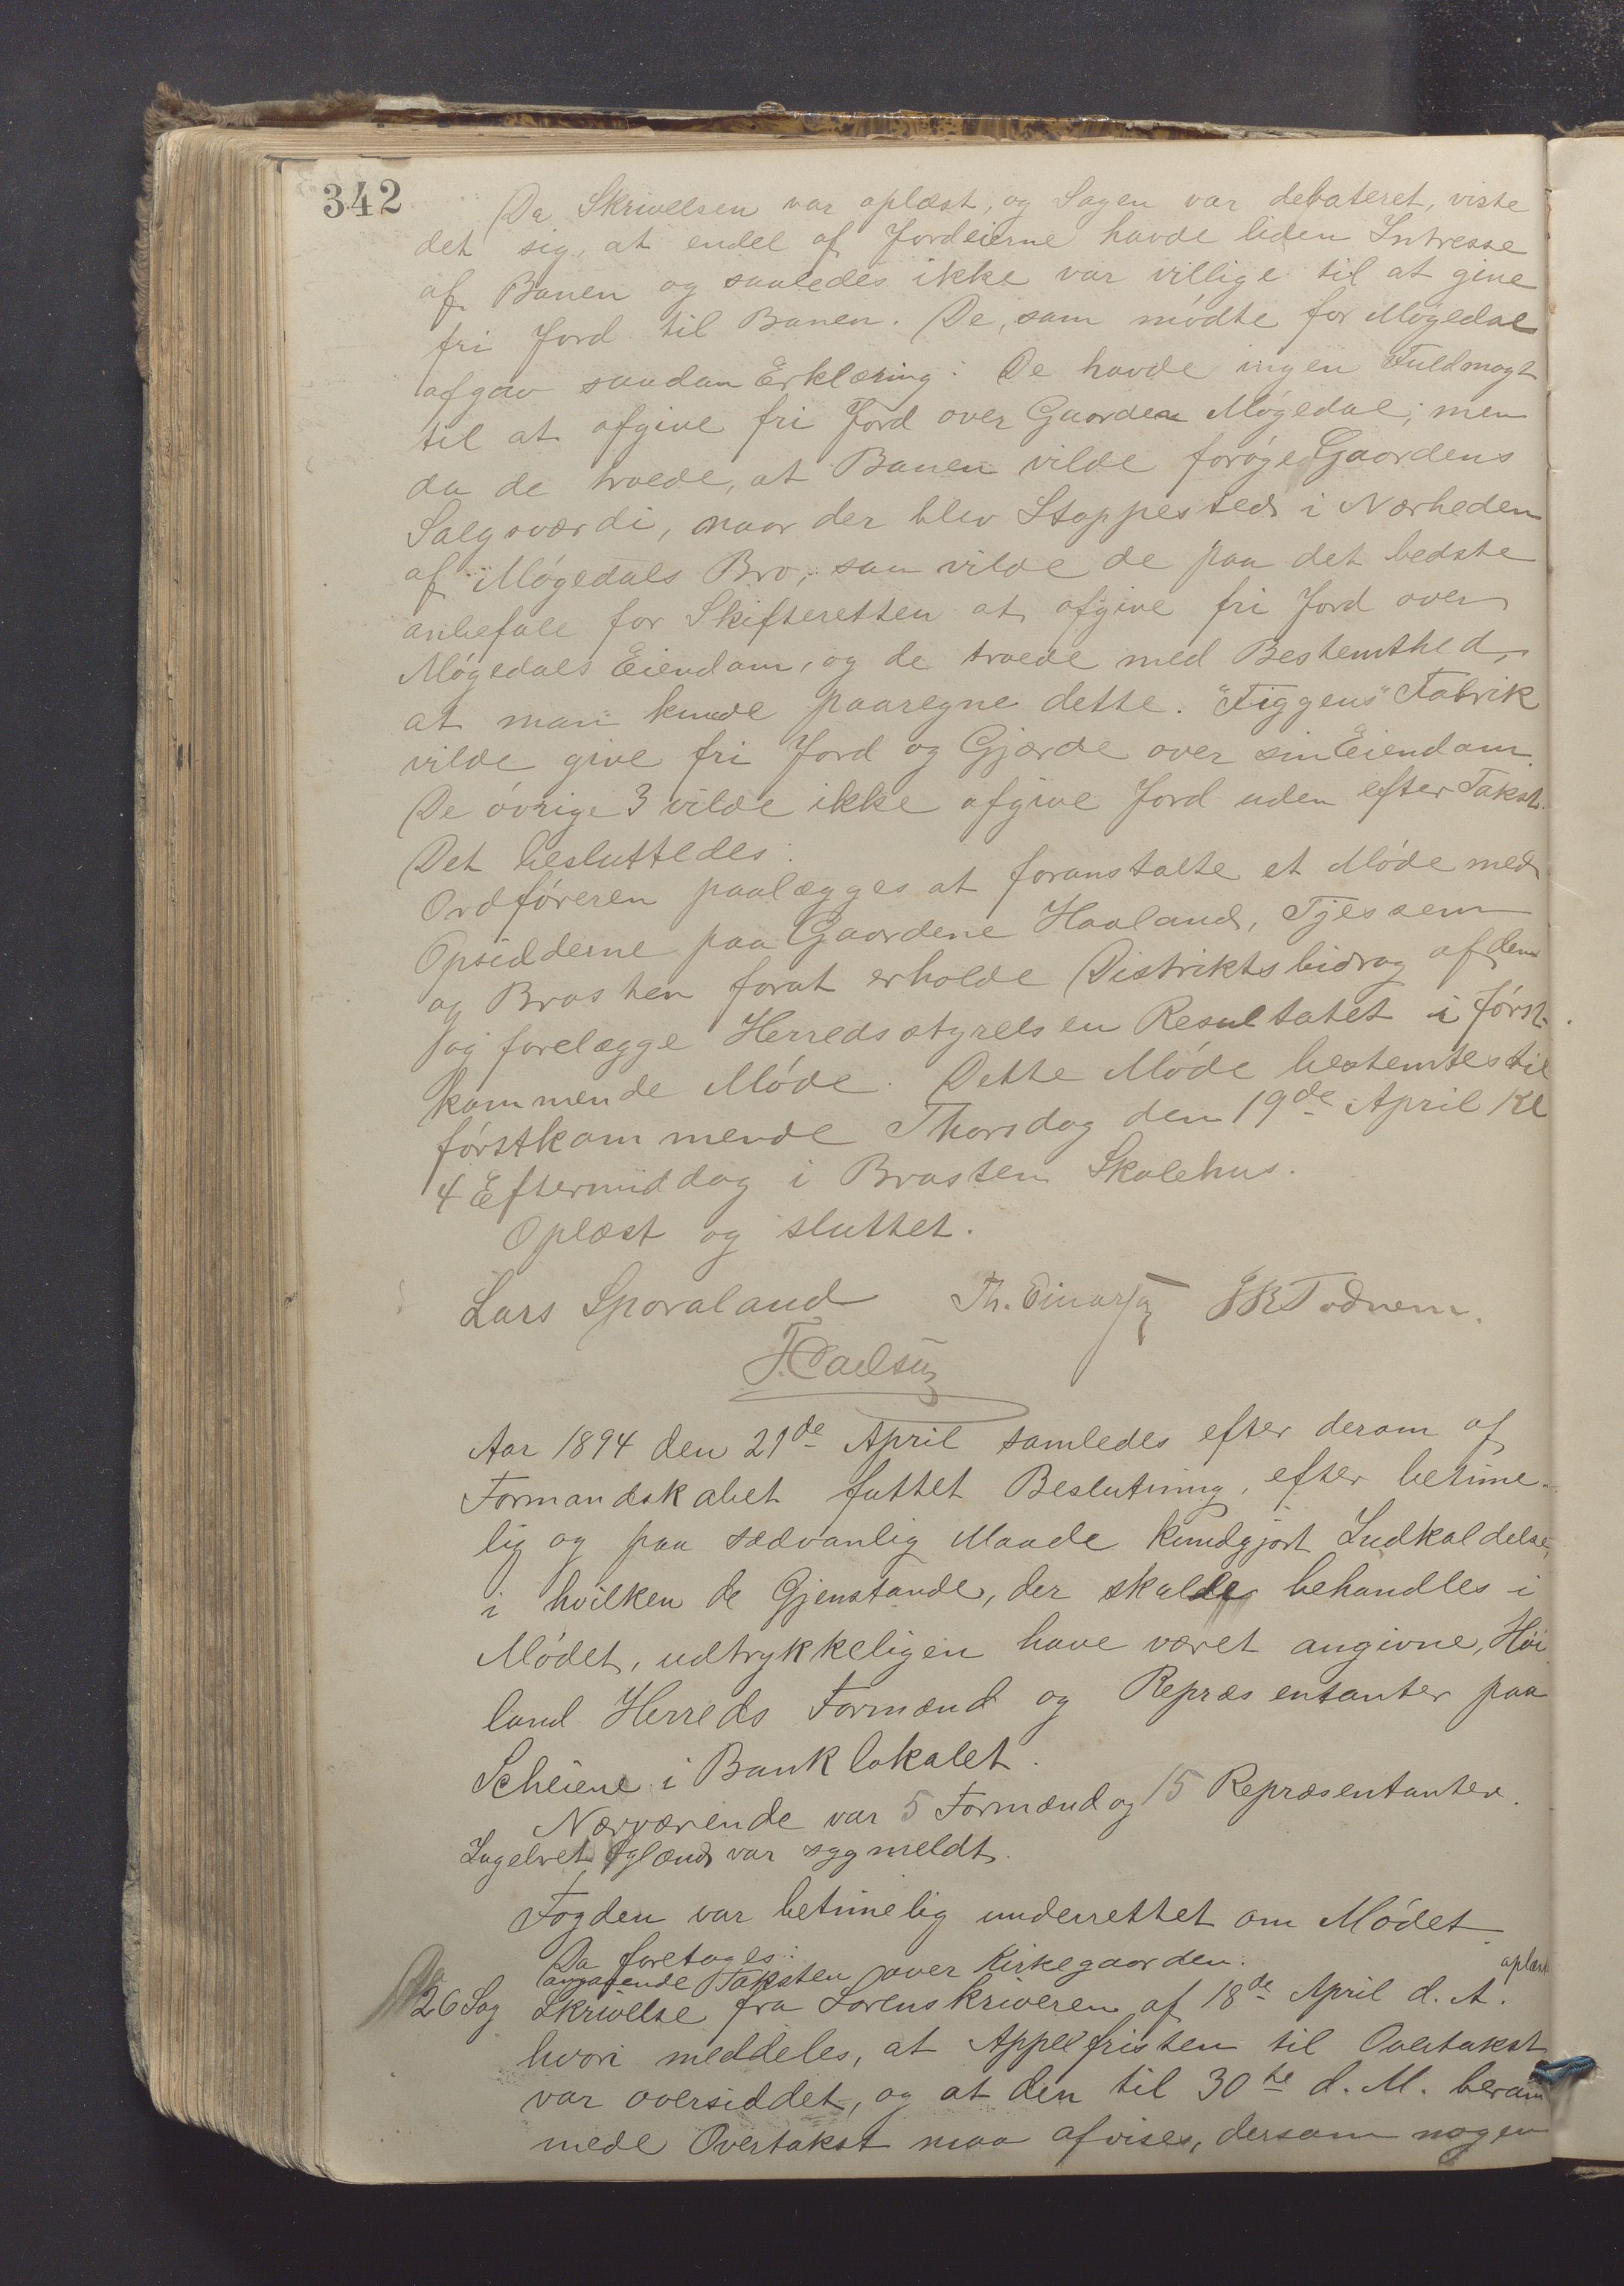 342
Da Skrivelsen var oplæst, og Sagen var debateret, viste
det sig, at endel af Jordeierne havde liden Intresse
af Banen og saaledes ikke var villige til at give
fri Jord til Banen. De, som mødte for Møgedal
afgav saadan Erklæring: De havde ingen Fuldmagt
til at afgive fri Jord over Gaarden Møgedal; men
da de troede, at Banen vilde forøge Gaardens
Salgsværdi, naar der blev Stoppested i Nærheden
af Møgedals Bro, saa vilde de paa det bedste
anbefale for Skifteretten at afgive fri Jord over
Møgedals Eiendom, og de troede med Bestemthed,
at man kunde paaregne dette. "Figgens" Fabrik
vilde give fri Jord og Gjærde over sin Eiendom.
De øvrige 3 vilde ikke afgive Jord uden efter Takst.
Det besluttedes:
Ordføreren paalægges at foranstalte et Møde med
Opsidderne paa Gaardene Haaland, Tjessem
og Brasten forat erholde Distriktsbidrag af dem
og forelægge Herredsstyrelsen Resultatet i først-
kommende Møde. Dette Møde bestemtes til
førstkommende Thorsdag den 19de April Kl
4 Eftermiddag i Brasten Skolehus.
Oplæst og sluttet.
Lars Sporaland Th. Einarsen Todnem.
Aar 1894 den 21de April samledes efter derom af
Formandskabet fattet Beslutning, efter betime-
lig og paa sædvanlig Maade kundgjort Indkaldelse,
i hvilken de Gjenstande, der skulde behandles i
Mødet, udtrykkeligen have været angivne, Høi
land Herreds Formænd og Repræsentanter paa
Scheiene i Banklokalet.
Nærværende var 5 Formænd og 15 Repræsentanter.
Ingebret Øgland var sygmeldt.
Fogden var betimelig underrettet om Mødet
Da foretages:
angaaende Taksten over Kirkegaarden. oplæst
26 Sag Skrivelse fra Sorenskriveren af 18de April d. A.
hvori meddeles, at Appelfristen til Overtakst
var oversiddet, og at den til 30te d. M. beram
mede Overtakst maa afvises, dersom nogen